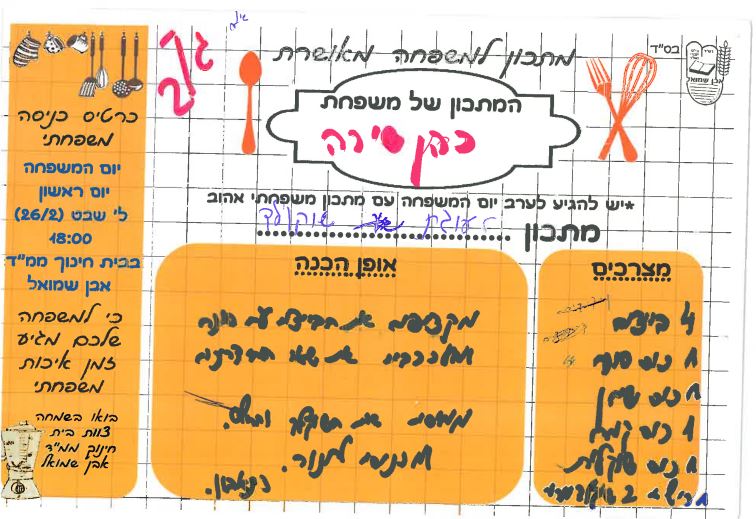 בס"ד
אבן שמואל
מתכון למשפחה מאושרת
המתכון של משפחת
כהן
*יש להגיע לערב יום המשפחה עם מתכון משפחתי אהוב
מתכון עוגת שוקולד
מצרכים
4 ביצים
1 כוס סוכר
1 כוס שמן
1 כוס קמח
1 כוס
2
אופן הכנה
מקציפים את הביצים עם
את שאר
את השוקולד
ומכניסים לתנור.
בתיאבון.
כרטיס כניסה
משפחתי
יום המשפחה
יום ראשון
לי שבט (26/2)
18:00
בבית חינוך ממ"ד
אבן שמואל
כי למשפחה
שלכם מגיע
זמן איכות
משפחתי
בואו בשמחה
צוות בית
חינוך ממ"ד
אבן שמואל